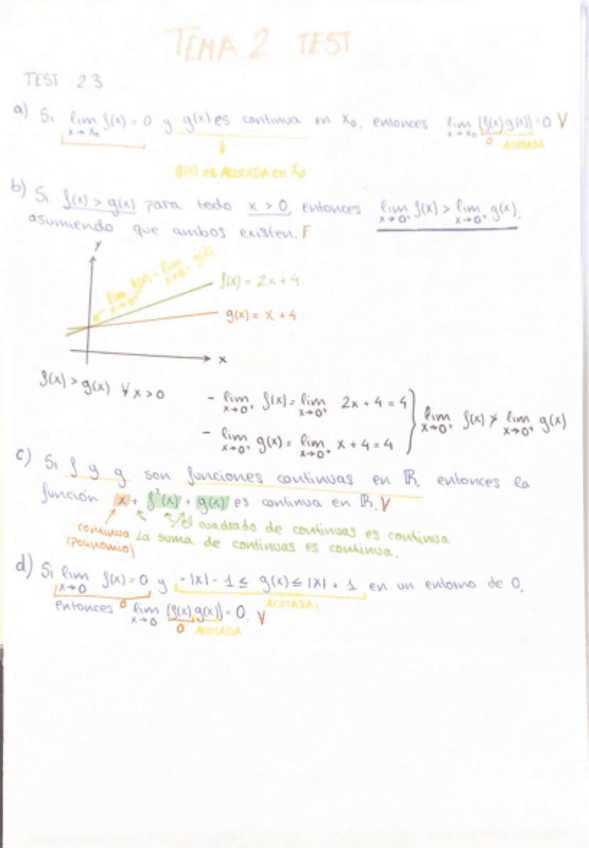 TEMA 2 TEST
TEST 2.3
a) Si lim x→x₀ f(x) = 0 y g(x) es continua en x₀, entonces lim x→x₀ (f(x)g(x)) = 0 V
0 ACOTADA
g(x) es ACOTADA en x₀
b) Si f(x) > g(x) para todo x > 0, entonces lim x→0⁺ f(x) > lim x→0⁺ g(x),
asumiendo que ambos existen. F
y
lim x→0⁺ f(x) = lim x→0⁺ g(x)
f(x) = 2x + 4
g(x) = x + 4
x
f(x) > g(x) ∀ x > 0
- lim x→0⁺ f(x) = lim x→0⁺ 2x + 4 = 4
- lim x→0⁺ g(x) = lim x→0⁺ x + 4 = 4
} lim x→0⁺ f(x) ≯ lim x→0⁺ g(x)
c) Si f y g son funciones continuas en ℝ, entonces la
función x + f²(x) + g(x) es continua en ℝ. V
continua (polinomio)
el cuadrado de continuas es continua
La suma de continuas es continua.
d) Si lim x→0 f(x) = 0 y -|x| - 1 ≤ g(x) ≤ |x| + 1 en un entorno de 0,
0 ACOTADA
entonces lim x→0 (f(x)g(x)) = 0. V
0 ACOTADA